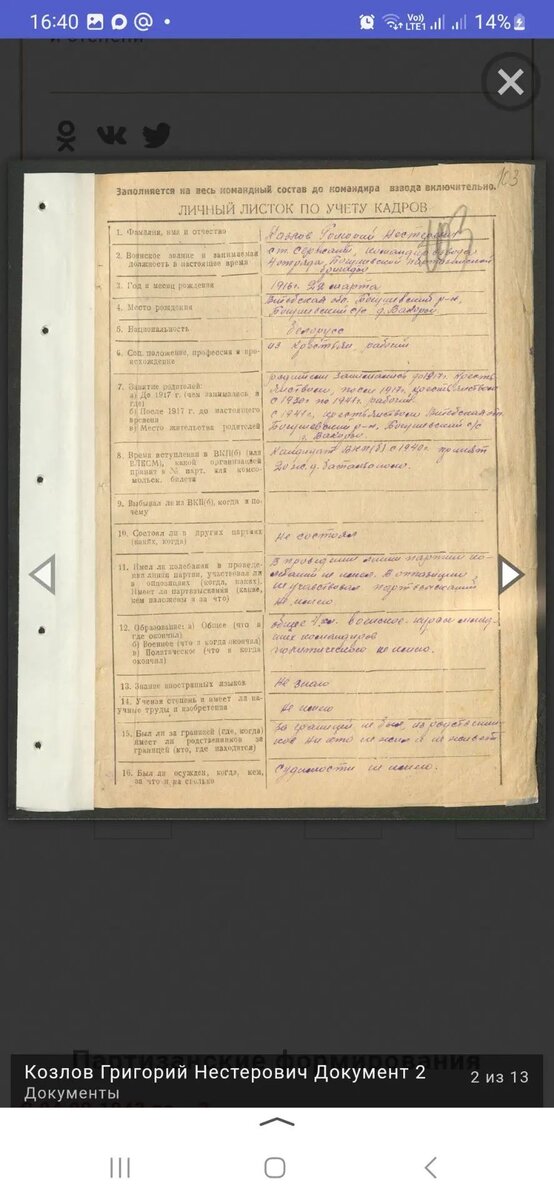 16:40
Vo))
LTE1
14%
и степени
103
Заполняется на весь командный состав до командира взвода включительно.
ЛИЧНЫЙ ЛИСТОК ПО УЧЕТУ КАДРОВ
1. Фамилия, имя и отчество
Козлов Григорий Нестерович
2. Воинское звание и занимаемая
должность в настоящее время
ст. Сержант, командир взвода
4 отряда, Богушевской партизанской
бригады
3. Год и месяц рождения
1916 г. 22 марта
4. Место рождения
Витебская обл. Богушевский р-н,
Богушевский с/с д.
5. Национальность
белорусс
6. Соц. положение, профессия и про-
исхождение
из крестьян рабочий
7. Занятие родителей:
а) До 1917 г. (чем занимались и
где)
б) После 1917 г. до настоящего
времени
в) Место жительства родителей
родители занимались до 1917 г. кресть
янством, после 1917 г. крестьянством
с 1930 по 1941 г. рабочий
с 1941 г. крестьянством Витебская обл.
Богушевский р-н. Богушевский с/с
8. Время вступления в ВКП(б) (или
ВЛКСМ), какой организацией
принят и № парт. или комсо-
мольск. билета
Кандидат ВКП(б) с 1940 г.
9. Выбывал ли из ВКП(б), когда и по-
чему
10. Состоял ли в других партиях
(каких, когда)
Не состоял
11. Имел ли колебания в проведе-
нии линии партии, участвовал ли
в оппозициях (когда, каких).
Имеет ли партвзыскания (какие,
кем наложены и за что)
В проведении линии партии ко-
лебаний не имел. В оппозиции
не участвовал партвзысканий
не имею
12. Образование: а) Общее (что и
где окончил)
б) Военное (что и когда окончил)
в) Политическое (что и когда
окончил)
общее 4 кл. военное курсы млад
ших командиров
политического не имею.
13. Знание иностранных языков
Не знаю
14. Ученая степень и имеет ли на-
учные труды и изобретения
Не имею
15. Был ли за границей (где, когда)
имеет ли родственников за
границей (кто, где находится)
За границей не был, из родственни-
ков никто не жил и не живет
16. Был ли осужден, когда, кем,
за что и на сколько
Судимости не имею.
Партизанские формирования
Козлов Григорий Нестерович Документ 2
2 из 13
Документы